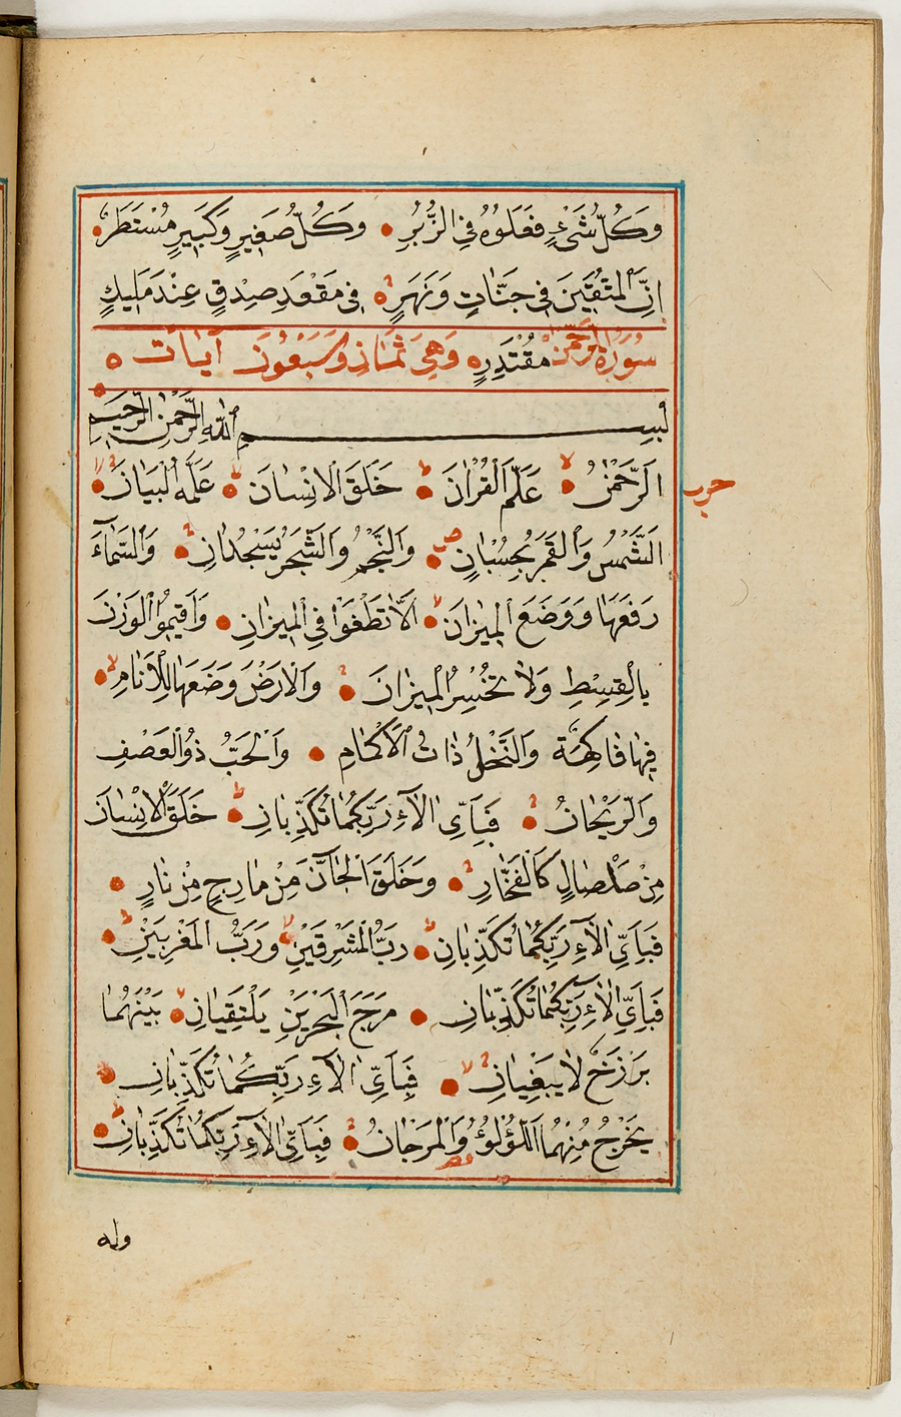 وَكُلُّ شَىْءٍ فَعَلُوهُ فِى الزُّبُرِ ۝ وَكُلُّ صَغِيرٍ وَكَبِيرٍ مُسْتَطَرٌ
اِنَّ الْمُتَّقِينَ فِى جَنَّاتٍ وَنَهَرٍ ۝ فِى مَقْعَدِ صِدْقٍ عِنْدَ مَلِيكٍ
سُورَةُ الرَّحْمٰن مُقْتَدِرٍ ۝ وَهِىَ ثَمَانِ وَسَبْعُونَ آيَات ۝
بِسْمِ اللهِ الرَّحْمٰنِ الرَّحِيمِ
اَلرَّحْمٰنُ ۝ عَلَّمَ الْقُرْاٰنَ ۝ خَلَقَ الْاِنْسَانَ ۝ عَلَّمَهُ الْبَيَانَ ۝
حزب
اَلشَّمْسُ وَالْقَمَرُ بِحُسْبَانٍ ۝ وَالنَّجْمُ وَالشَّجَرُ يَسْجُدَانِ ۝ وَالسَّمَآءَ
رَفَعَهَا وَوَضَعَ الْمِيزَانَ ۝ اَلَّا تَطْغَوْا فِى الْمِيزَانِ ۝ وَاَقِيمُوا الْوَزْنَ
بِالْقِسْطِ وَلَا تُخْسِرُ الْمِيزَانَ ۝ وَالْاَرْضَ وَضَعَهَا لِلْاَنَامِ ۝
فِيهَا فَاكِهَةٌ وَالنَّخْلُ ذَاتُ الْاَكْمَامِ ۝ وَالْحَبُّ ذُو الْعَصْفِ
وَالرَّيْحَانُ ۝ فَبِاَىِّ اٰلَآءِ رَبِّكُمَا تُكَذِّبَانِ ۝ خَلَقَ الْاِنْسَانَ
مِنْ صَلْصَالٍ كَالْفَخَّارِ ۝ وَخَلَقَ الْجَآنَّ مِنْ مَارِجٍ مِنْ نَارٍ ۝
فَبِاَىِّ اٰلَآءِ رَبِّكُمَا تُكَذِّبَانِ ۝ رَبُّ الْمَشْرِقَيْنِ وَرَبُّ الْمَغْرِبَيْنِ ۝
فَبِاَىِّ اٰلَآءِ رَبِّكُمَا تُكَذِّبَانِ ۝ مَرَجَ الْبَحْرَيْنِ يَلْتَقِيَانِ ۝ بَيْنَهُمَا
بَرْزَخٌ لَا يَبْغِيَانِ ۝ فَبِاَىِّ اٰلَآءِ رَبِّكُمَا تُكَذِّبَانِ ۝
يَخْرُجُ مِنْهُمَا اللُّؤْلُؤُ وَالْمَرْجَانُ ۝ فَبِاَىِّ اٰلَآءِ رَبِّكُمَا تُكَذِّبَانِ ۝
وله